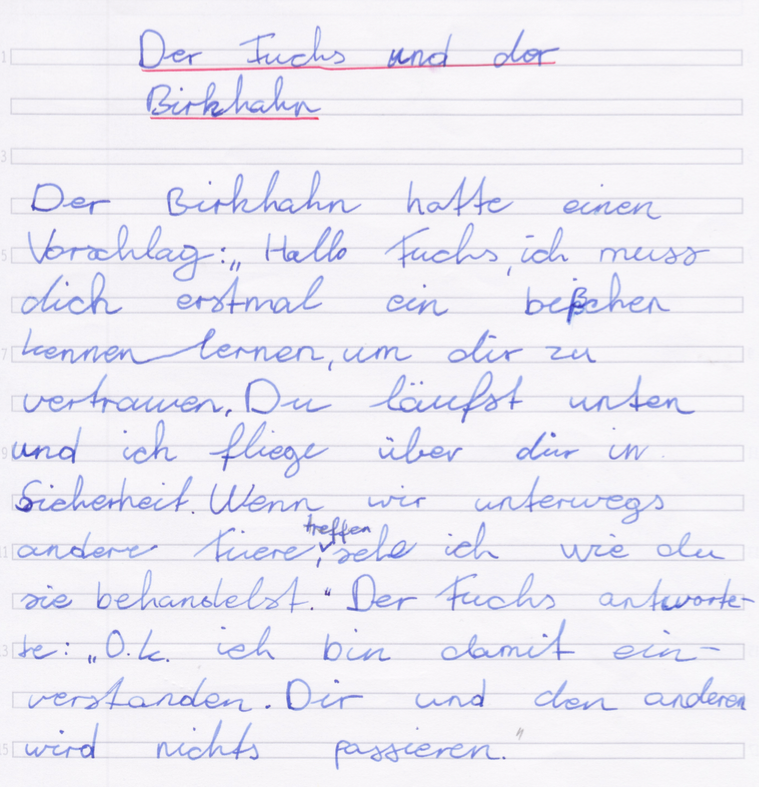 Der Fuchs und der
Birkhahn
Der Birkhahn hatte einen
Vorschlag: „Hallo Fuchs, ich muss
dich erstmal ein bißchen
kennen lernen, um dir zu
vertrauen. Du läufst unten
und ich fliege über dir in
Sicherheit. Wenn wir unterwegs
andere Tiere treffen, sehe ich wie du
sie behandelst.“ Der Fuchs antworte-
te: „O.k. ich bin damit ein-
verstanden. Dir und den anderen
wird nichts passieren.“